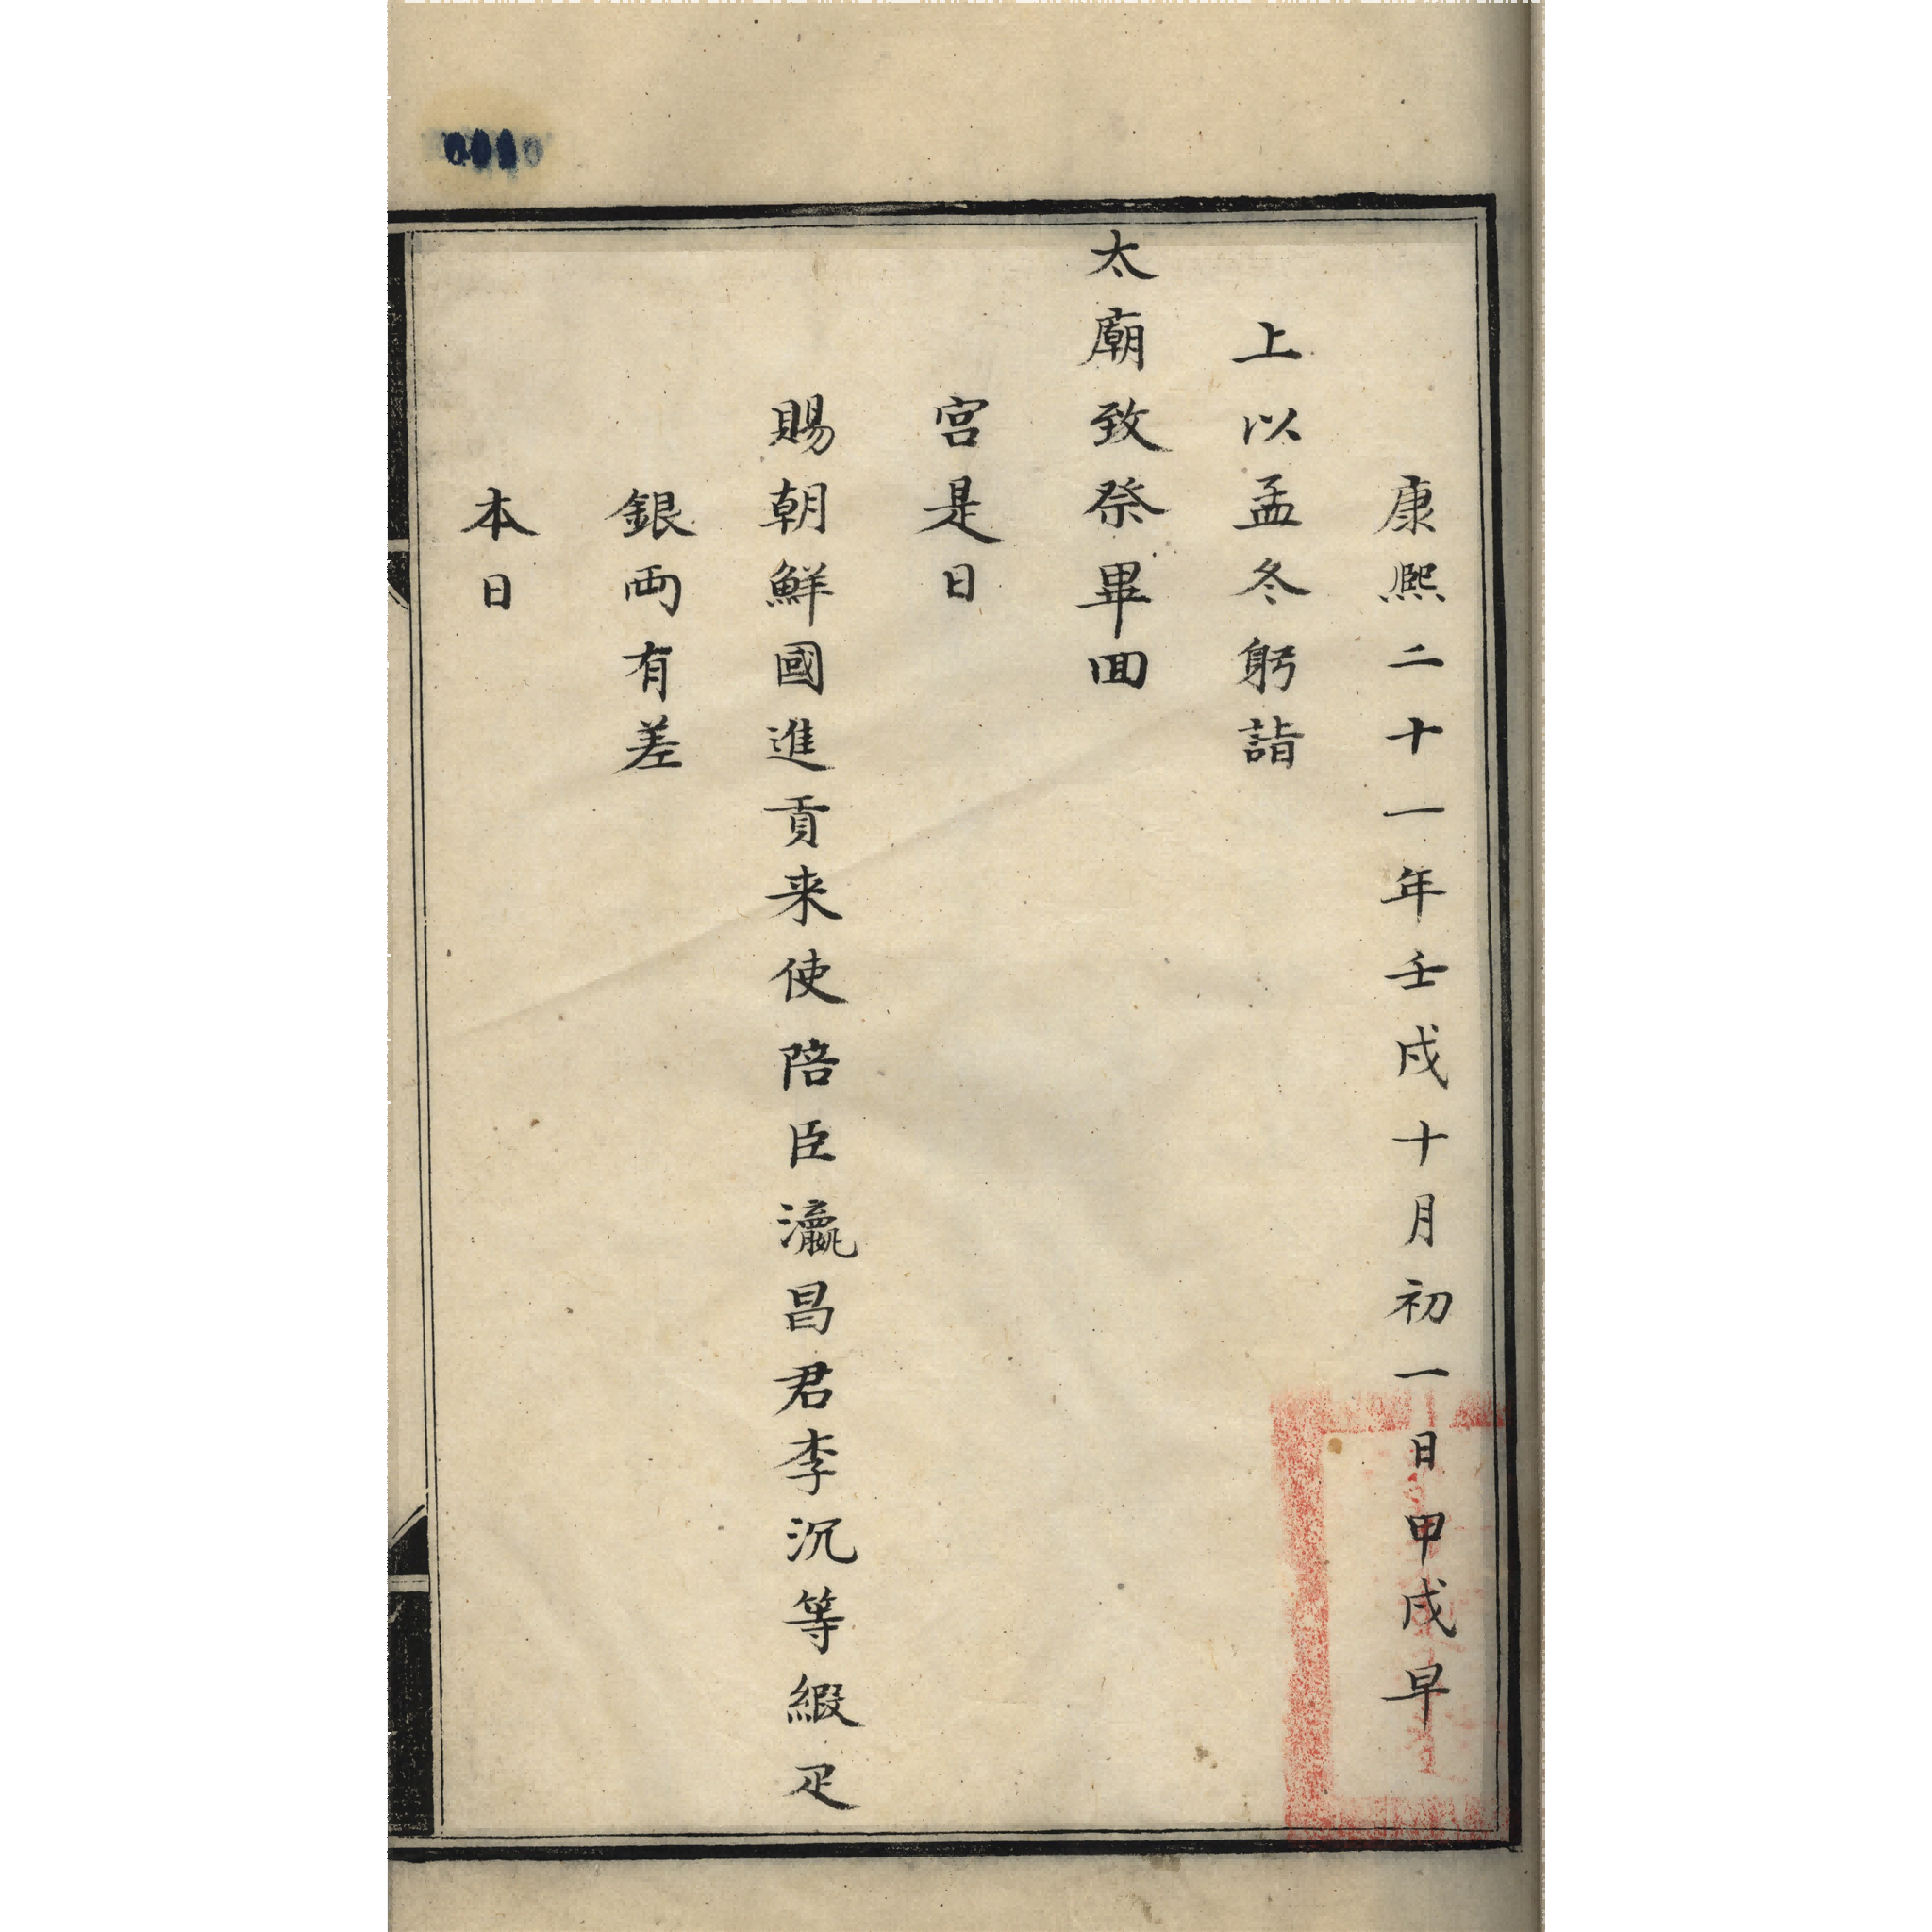 康熙二十一年壬戌十月初一日甲戌早
上以孟冬躬詣
太廟致祭畢囬
宮是日
賜朝鮮國進貢来使陪臣瀛昌君李沉等縀疋
銀両有差
本日